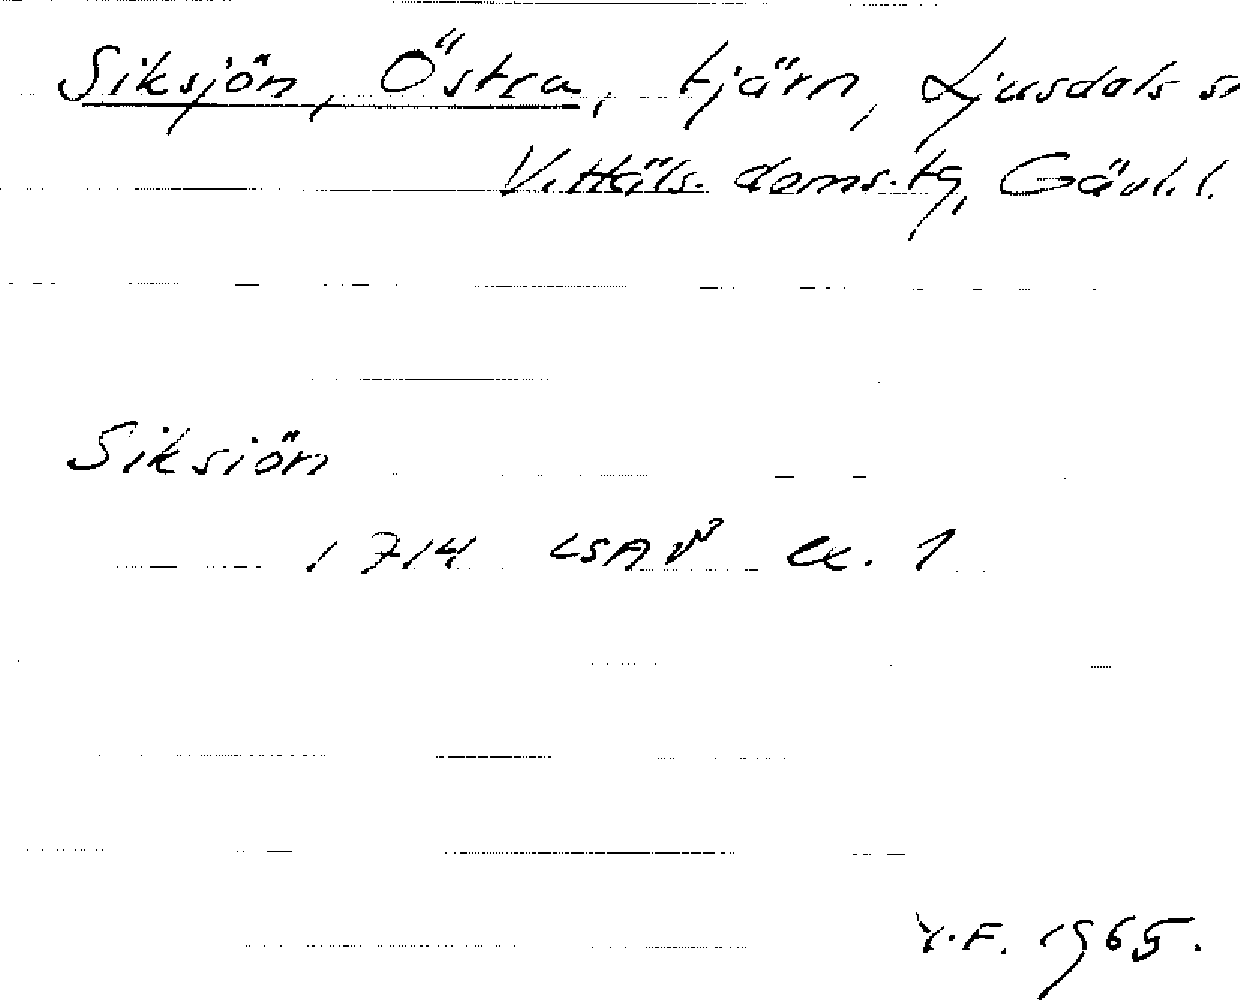 Siksjön, Östra, tjärn, Ljusdals sn
V. Häls. doms. tg, Gävl. l.
Siksiön
1714 LSA V³ ex. 1
Y.F. 1965.